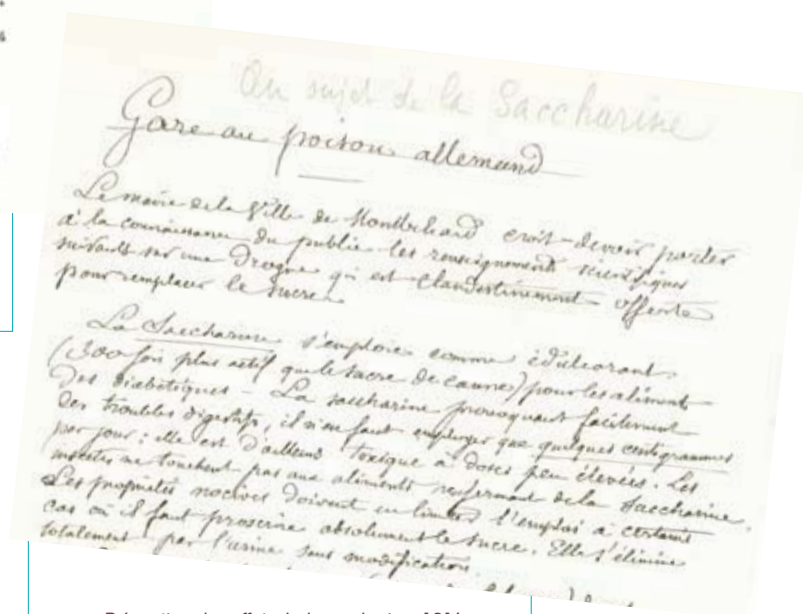 Au sujet de la Saccharine
Gare au poison allemand
Le maire de la Ville de Montbéliard croit devoir porter
à la connaissance du public les renseignements scientifiques
suivants sur une Drogue qui est clandestinement offerte
pour remplacer le sucre.
La Saccharine s'emploie comme édulcorant
(300 fois plus actif que le sucre de canne) pour les aliments
des diabétiques – La saccharine provoquant facilement
des troubles digestifs, il n'en faut employer que quelques centigrammes
par jour : elle est d'ailleurs toxique à doses peu élevées. Les
insectes ne touchent pas aux aliments renfermant de la Saccharine.
Ses propriétés nocives doivent en limiter l'emploi à certains
cas où il faut proscrire absolument le sucre. Elle s'élimine
totalement par l'urine sans modification.